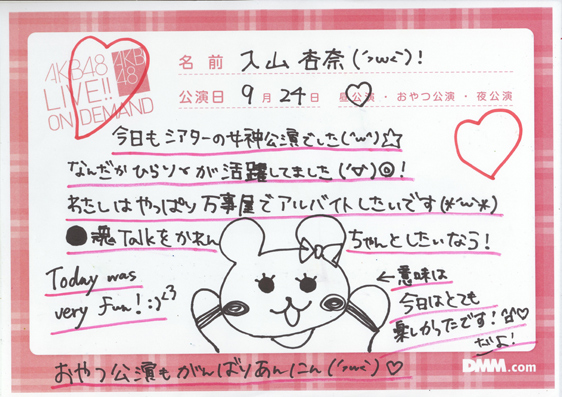 AKB48
LIVE!!
ON DEMAND
AKB
48
名前 入山杏奈(´>ω<`)!
公演日 9月24日 昼公演・おやつ公演・夜公演
今日もシアターの女神公演でした(´`ω´`)☆
なんだかひらりーが活躍してました(´∀`)◎!
わたしはやっぱり万事屋でアルバイトしたいです(*´`ω´`*)
●魂Talkをかれんちゃんとしたいなう!
Today was
very fun!:)<3
←意味は
今日はとても
楽しかったです!♡
だよ!
おやつ公演もがんばりあんにん(´>ω<`)♡
DMM.com